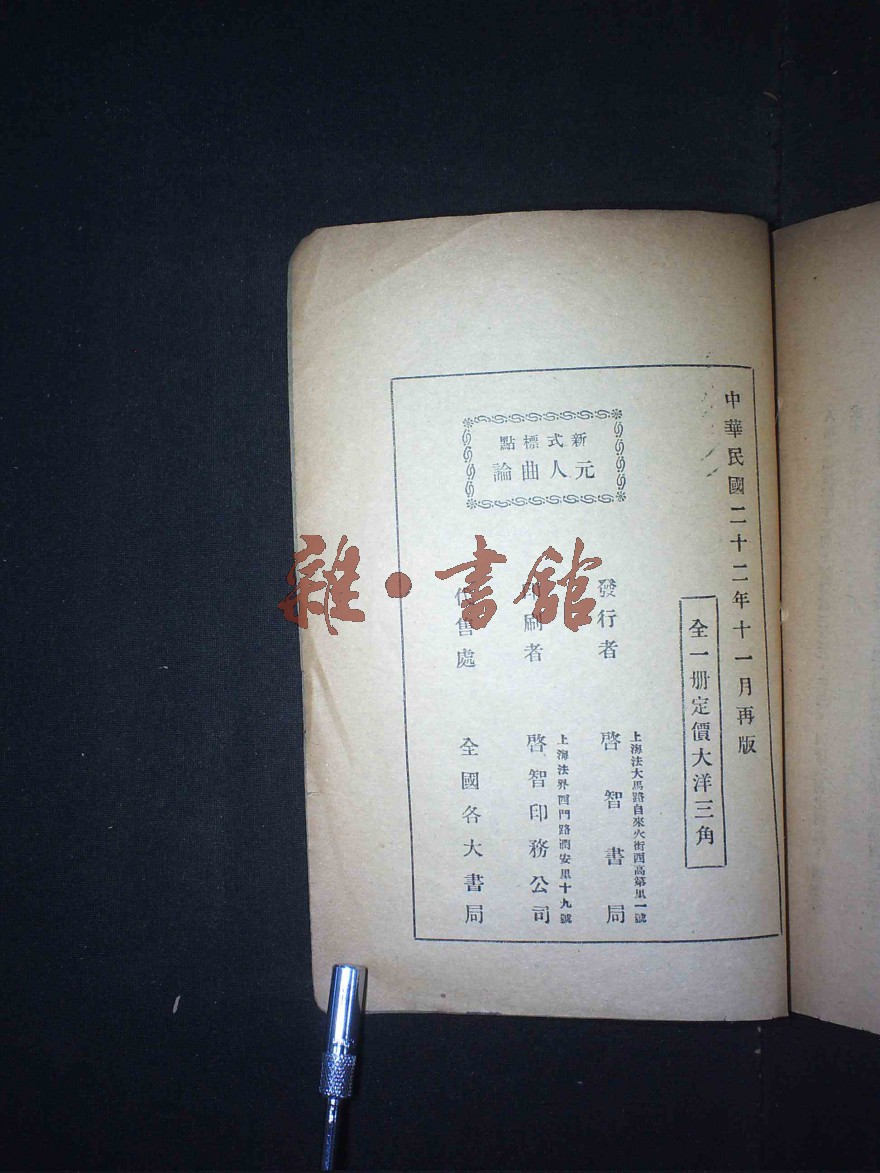 中華民國二十二年十一月再版
全一册定價大洋三角
新式標點
元人曲論
發行者
上海法大馬路自來火街西高第里一號
啓智書局
印刷者
上海法界西門路潤安里十九號
啓智印務公司
售處
全國各大書局
雜·書館